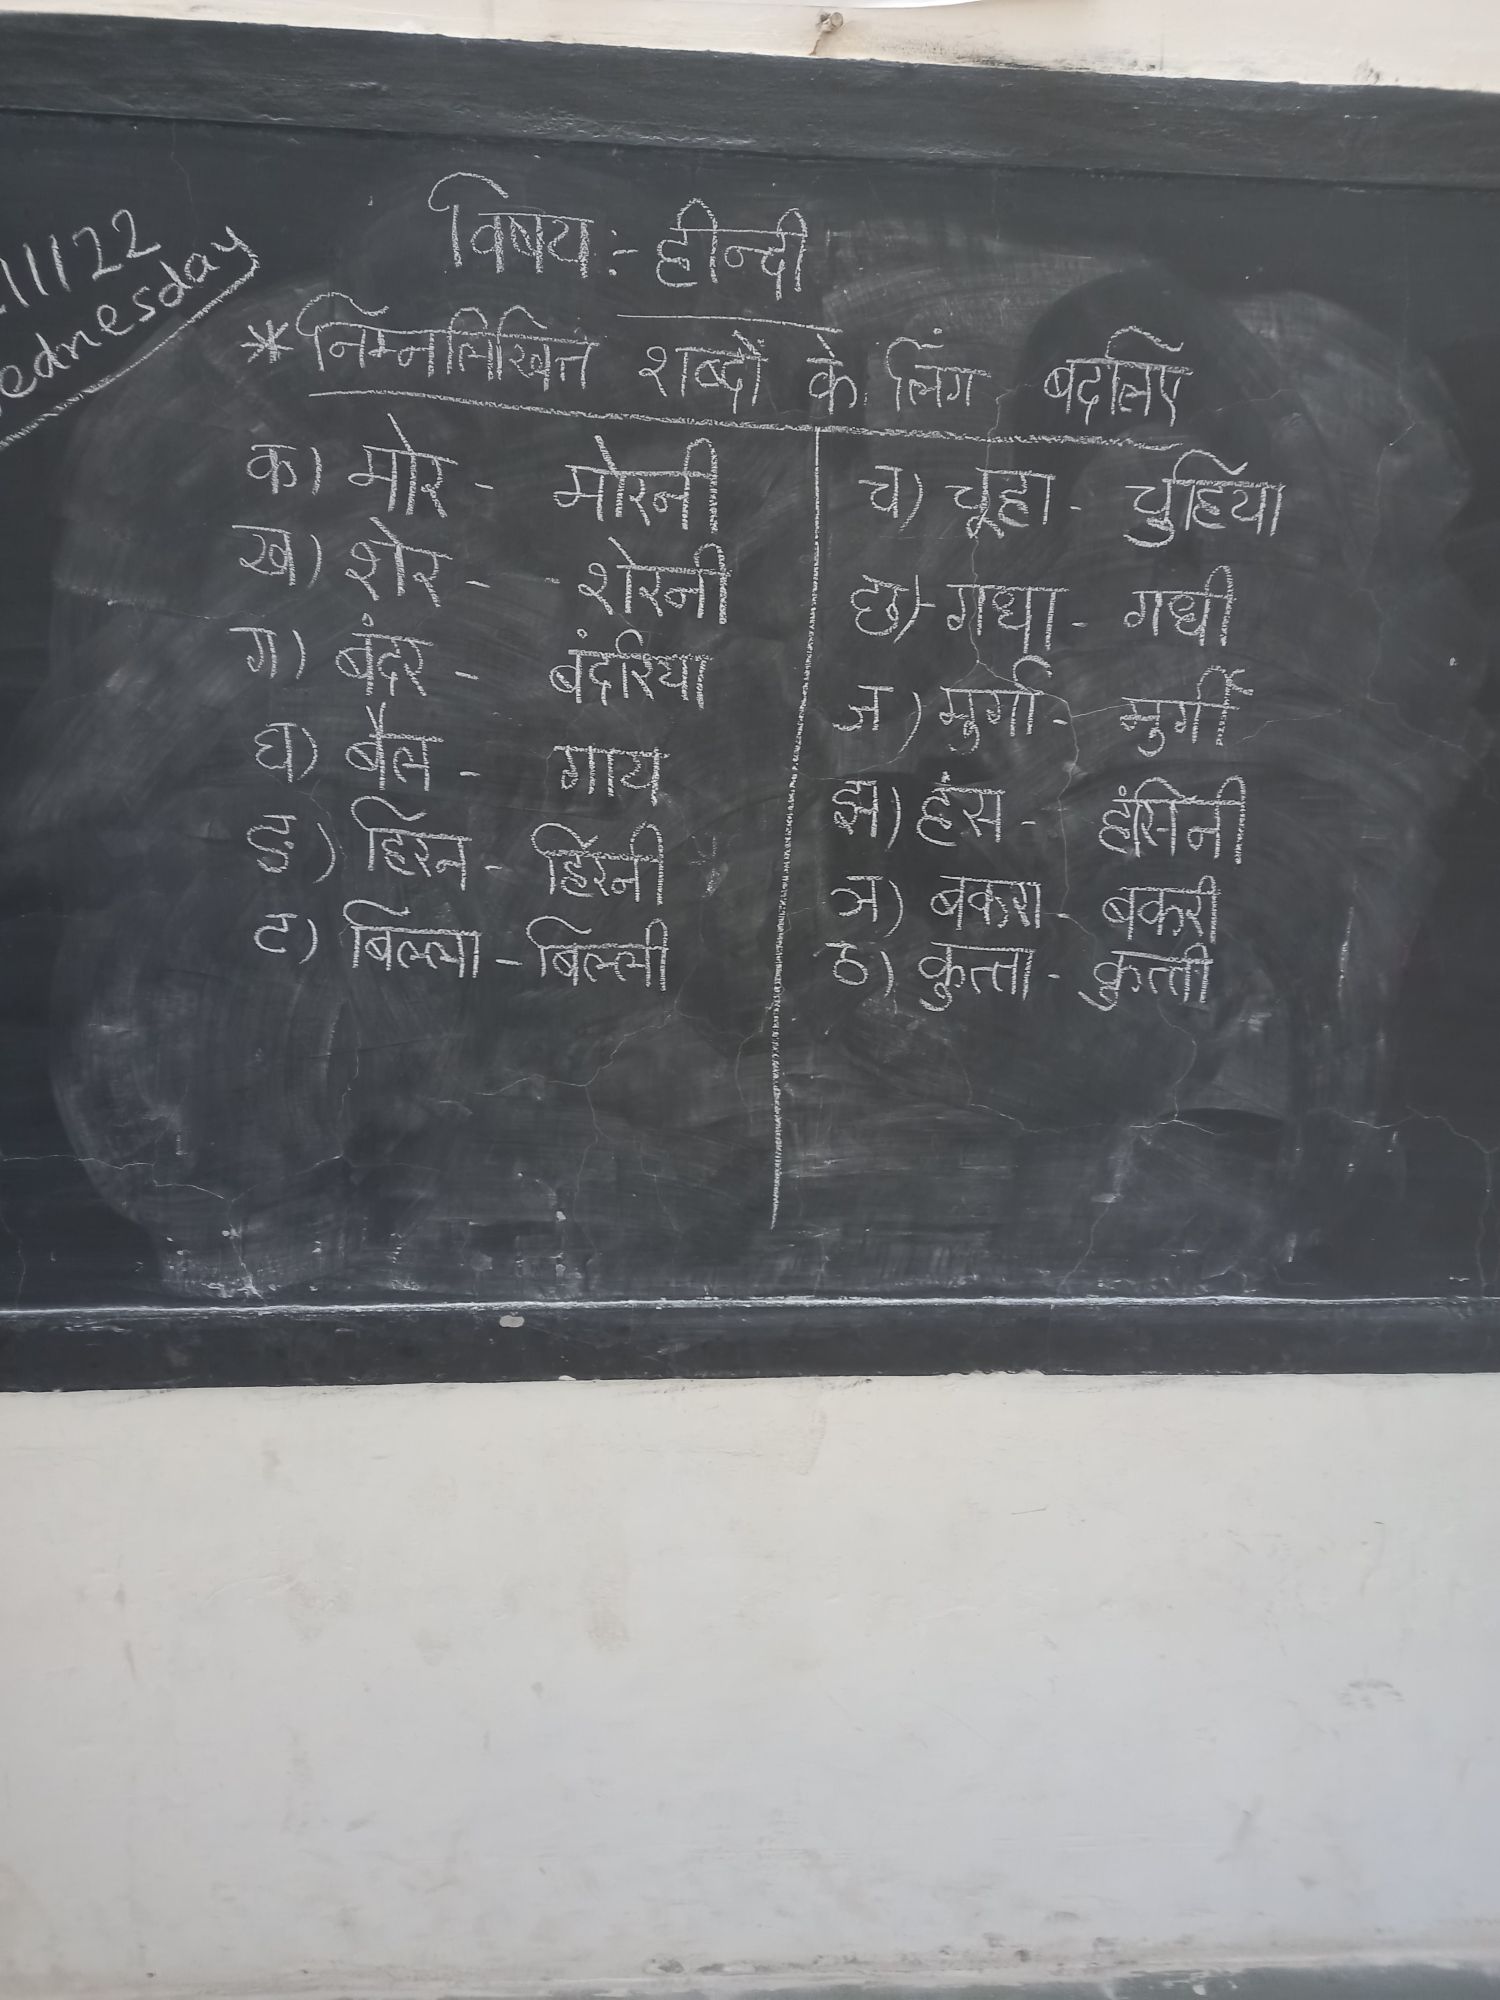 11/22
Wednesday
विषय:- हीन्दी
* निम्नलिखित शब्दों के लिंग बदलिए
क) मोर - मोरनी
ख) शेर - - शेरनी
ग) बंदर - बंदरिया
घ) बैल - गाय
ङ) हिरन - हिरनी
ट) बिल्ला - बिल्ली
च) चूहा - चुहिया
छ) गधा - गधी
ज) मुर्गा - मुर्गी
झ) हंस - हंसिनी
ञ) बकरा - बकरी
ठ) कुत्ता - कुत्ती